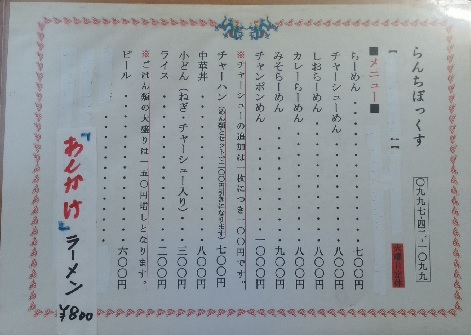 らんちぼっくす
〇九九七-四二-一〇九九
■メニュー■
らーめん・・・・・・・・・七〇〇円
チャーシューめん・・・・・・八〇〇円
しおらーめん・・・・・・・八〇〇円
カレーらーめん・・・・・・八〇〇円
みそらーめん・・・・・・・九〇〇円
チャンポンめん・・・・・一〇〇〇円
※チャーシューの追加は一枚につき一〇〇円です。
チャーハン（めん類とセットで二〇〇円引きになります）七〇〇円
中華丼・・・・・・・・・・八〇〇円
小どん（ねぎ・チャーシュー入り）・・三〇〇円
ライス・・・・・・・・・・二〇〇円
※ごはん類の大盛りは一五〇円増しとなります。
ビール・・・・・・・・・・六〇〇円
『あんかけ』ラーメン ¥800